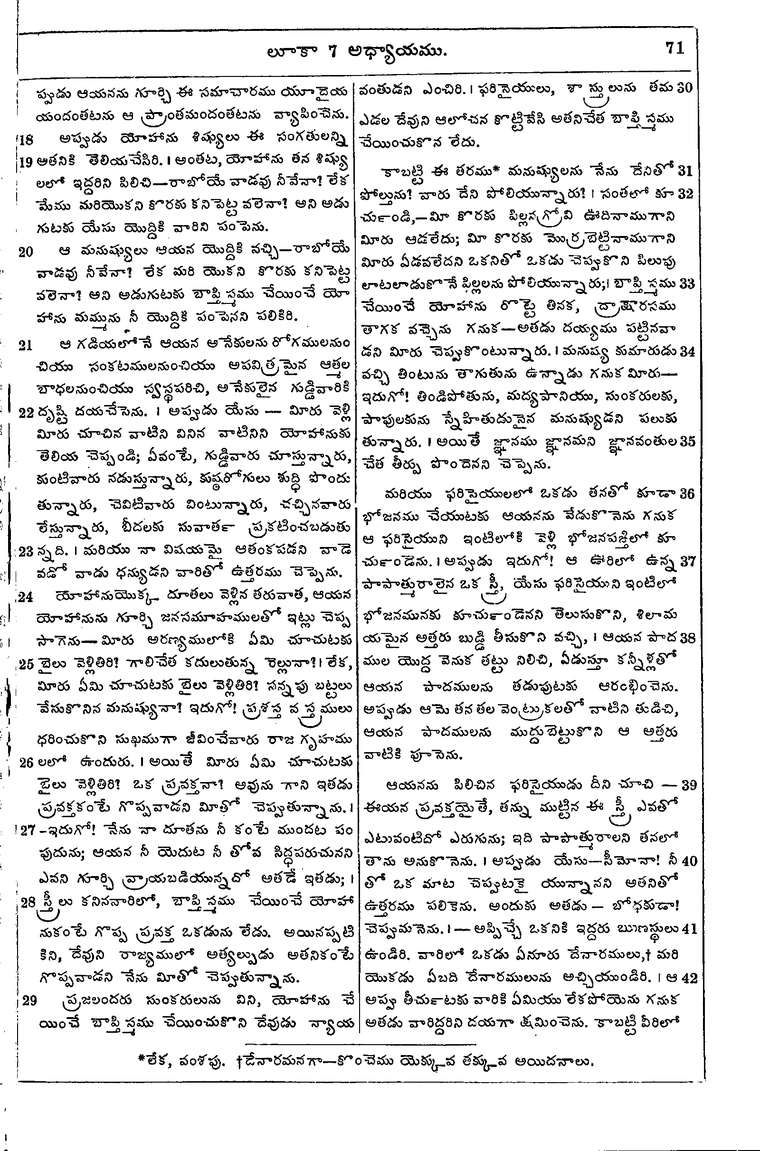 లూకా 7 అధ్యాయము. 71
ప్పుడు ఆయనను గూర్చి ఈ సమాచారము యూదైయ
యందంతటను ఆ ప్రాంతమందంతటను వ్యాపించెను.
18 అప్పుడు యోహాను శిష్యులు ఈ సంగతులన్ని
19 అతనికి తెలియచేసిరి. । అంతట, యోహాను తన శిష్యు
లలో ఇద్దరిని పిలిచి—రాబోయే వాడవు నీవేనా? లేక
మేము మరియొకని కొరకు కనిపెట్ట వలెనా? అని అడు
గుటకు యేసు యొద్దికి వారిని పంపెను.
20 ఆ మనుష్యులు ఆయన యొద్దికి వచ్చి—రాబోయే
వాడవు నీవేనా? లేక మరి యొకని కొరకు కనిపెట్ట
వలెనా? అని అడుగుటకు బాప్తిస్మము చేయించే యో
హాను మమ్మును నీ యొద్దికి పంపెనని పలికిరి.
21 ఆ గడియలోనే ఆయన అనేకులను రోగములనుం
చియు సంకటములనుంచియు అపవిత్రమైన ఆత్మల
బాధలనుంచియు స్వస్థపరిచి, అనేకులైన గుడ్డివారికి
22 దృష్టి దయచేసెను. । అప్పుడు యేసు — మీరు వెళ్లి
మీరు చూచిన వాటిని వినిన వాటినిని యోహానుకు
తెలియ చెప్పండి; ఏవంటే, గుడ్డివారు చూస్తున్నారు,
కుంటివారు నడుస్తున్నారు, కుష్ఠరోగులు శుద్ధి పొందు
తున్నారు, చెవిటివారు వింటున్నారు, చచ్చినవారు
లేస్తున్నారు, బీదలకు సువార్త ప్రకటించబడుతు
23 న్నది. । మరియు నా విషయమై ఆతంకపడని వాడె
వడో వాడు ధన్యుడని వారితో ఉత్తరము చెప్పెను.
24 యోహానుయొక్క దూతలు వెళ్లిన తరువాత, ఆయన
యోహానును గూర్చి జనసమూహములతో ఇట్లు చెప్ప
సాగెను— మీరు అరణ్యములోకి ఏమి చూచుటకు
25 బైలు వెళ్లితిరి? గాలిచేత కదులుతున్న రెల్లునా?। లేక,
మీరు ఏమి చూచుటకు బైలు వెళ్లితిరి? సన్నపు బట్టలు
వేసుకొనిన మనుష్యునా? ఇదుగో! ప్రశస్త వస్త్రములు
ధరించుకొని సుఖముగా జీవించేవారు రాజ గృహము
26 లలో ఉందురు. । అయితే మీరు ఏమి చూచుటకు
బైలు వెళ్లితిరి? ఒక ప్రవక్తనా? అవును గాని ఇతడు
ప్రవక్తకంటే గొప్పవాడని మీతో చెప్పుతున్నాను. ।
27 -ఇదుగో! నేను నా దూతను నీ కంటే ముందట పం
పుదును; ఆయన నీ యెదుట నీ తోవ సిద్ధపరుచునని
ఎవని గూర్చి వ్రాయబడియున్నదో అతడే ఇతడు; ।
28 స్త్రీలు కనినవారిలో, బాప్తిస్మము చేయించే యోహా
నుకంటే గొప్ప ప్రవక్త ఒకడును లేడు. అయినప్పటి
కిని, దేవుని రాజ్యములో అత్యల్పుడు అతనికంటే
గొప్పవాడని నేను మీతో చెప్పుతున్నాను.
29 ప్రజలందరు సుంకరులును విని, యోహాను చే
యించే బాప్తిస్మము చేయించుకొని దేవుడు న్యాయ
వంతుడని ఎంచిరి. । ఫరిసైయులు, శాస్త్రులును తమ 30
ఎడల దేవుని ఆలోచన కొట్టివేసి అతనిచేత బాప్తిస్మము
చేయించుకొన లేదు.
కాబట్టి ఈ తరము* మనుష్యులను నేను దేనితో 31
పోల్తును? వారు దేని పోలియున్నారు?। సంతలో కూ 32
చుండి,—మీ కొరకు పిల్లనగ్రోవి ఊదినాముగాని
మీరు ఆడలేదు; మీ కొరకు మొర్రబెట్టినాముగాని
మీరు ఏడవలేదని ఒకనితో ఒకడు చెప్పుకొని పిలుపు
లాటలాడుకొనే పిల్లలను పోలియున్నారు;। బాప్తిస్మము 33
చేయించే యోహాను రొట్టె తినక, ద్రాక్షారసము
తాగక వచ్చెను గనుక—అతడు దయ్యము పట్టినవా
డని మీరు చెప్పుకొంటున్నారు. । మనుష్య కుమారుడు 34
వచ్చి తింటును తాగుతును ఉన్నాడు గనుక మీరు—
ఇదుగో! తిండిపోతును, మద్యపానియు, సుంకరులకు,
పాపులకును స్నేహితుడునైన మనుష్యుడని పలుకు
తున్నారు. । అయితే జ్ఞానము జ్ఞానమని జ్ఞానవంతుల 35
చేత తీర్పు పొందెనని చెప్పెను.
మరియు ఫరిసైయులలో ఒకడు తనతో కూడా 36
భోజనము చేయుటకు ఆయనను వేడుకొనెను గనుక
ఆ ఫరిసైయుని ఇంటిలోకి వెళ్లి భోజనపఙ్తిలో కూ
చుండెను. । అప్పుడు ఇదుగో! ఆ ఊరిలో ఉన్న 37
పాపాత్మురాలైన ఒక స్త్రీ, యేసు ఫరిసైయుని ఇంటిలో
భోజనమునకు కూచుండెనని తెలుసుకొని, శిలామ
యమైన అత్తరు బుడ్డి తీసుకొని వచ్చి, । ఆయన పాద 38
ముల యొద్ద వెనుక తట్టు నిలిచి, ఏడుస్తూ కన్నీళ్లతో
ఆయన పాదములను తడుపుటకు ఆరంభించెను.
అప్పుడు ఆమె తన తల వెంట్రుకలతో వాటిని తుడిచి,
ఆయన పాదములను ముద్దుబెట్టుకొని ఆ అత్తరు
వాటికి పూసెను.
ఆయనను పిలిచిన ఫరిసైయుడు దీని చూచి — 39
ఈయన ప్రవక్తయైతే, తన్ను ముట్టిన ఈ స్త్రీ ఎవతో
ఎటువంటిదో ఎరుగును; ఇది పాపాత్మురాలని తనలో
తాను అనుకొనెను. । అప్పుడు యేసు—సీమోనా! నీ 40
తో ఒక మాట చెప్పుటకై యున్నానని అతనితో
ఉత్తరము పలికెను. అందుకు అతడు — బోధకుడా!
చెప్పుమనెను. ।— అప్పిచ్చే ఒకనికి ఇద్దరు ఋణస్థులు 41
ఉండిరి. వారిలో ఒకడు ఏనూరు దేనారములు,† మరి
యొకడు ఏబది దేనారములును అచ్చియుండిరి. । ఆ 42
అప్పు తీర్చుటకు వారికి ఏమియు లేకపోయెను గనుక
అతడు వారిద్దరిని దయగా క్షమించెను. కాబట్టి వీరిలో
*లేక, వంశపు. †దేనారమనగా—కొంచెము యెక్కువ తక్కువ అయిదణాలు.